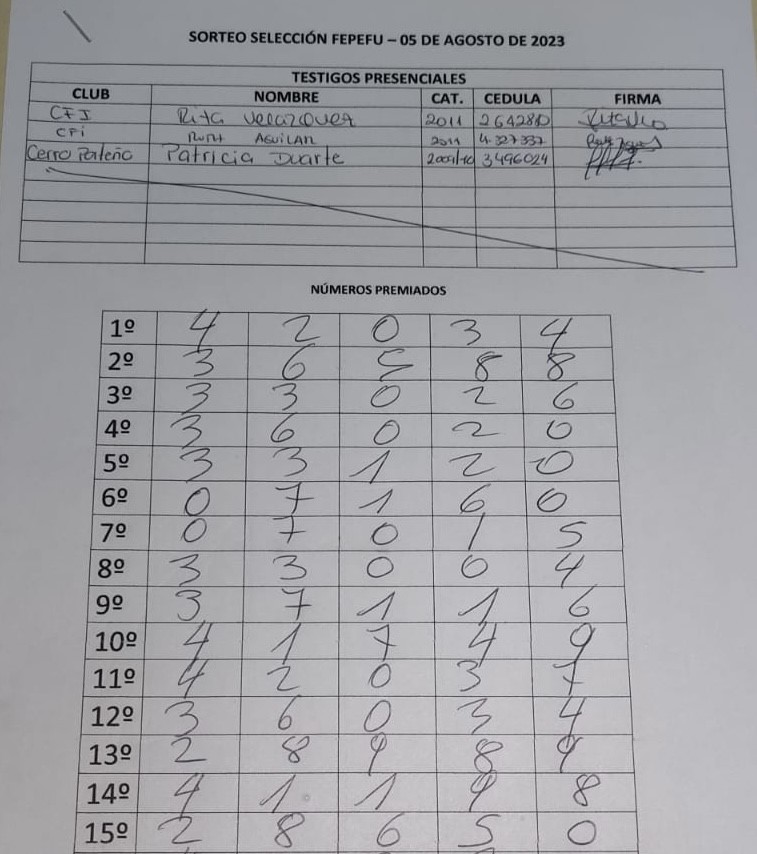 SORTEO SELECCIÓN FEPEFU – 05 DE AGOSTO DE 2023
TESTIGOS PRESENCIALES
CLUB NOMBRE CAT. CEDULA FIRMA
CFJ Rita Velazquez 2011 264280
CPi RUTH AGUILAR 2011 4327337
Cerro Porteño Patricia Duarte 2009/10 3496024
NÚMEROS PREMIADOS
1º 4 2 0 3 4
2º 3 6 5 8 8
3º 3 3 0 2 6
4º 3 6 0 2 0
5º 3 3 1 2 0
6º 0 7 1 6 0
7º 0 7 0 1 5
8º 3 3 0 0 4
9º 3 7 1 1 6
10º 4 1 7 4 9
11º 4 2 0 3 7
12º 3 6 0 3 4
13º 2 8 9 8 9
14º 4 1 1 9 8
15º 2 8 6 5 0